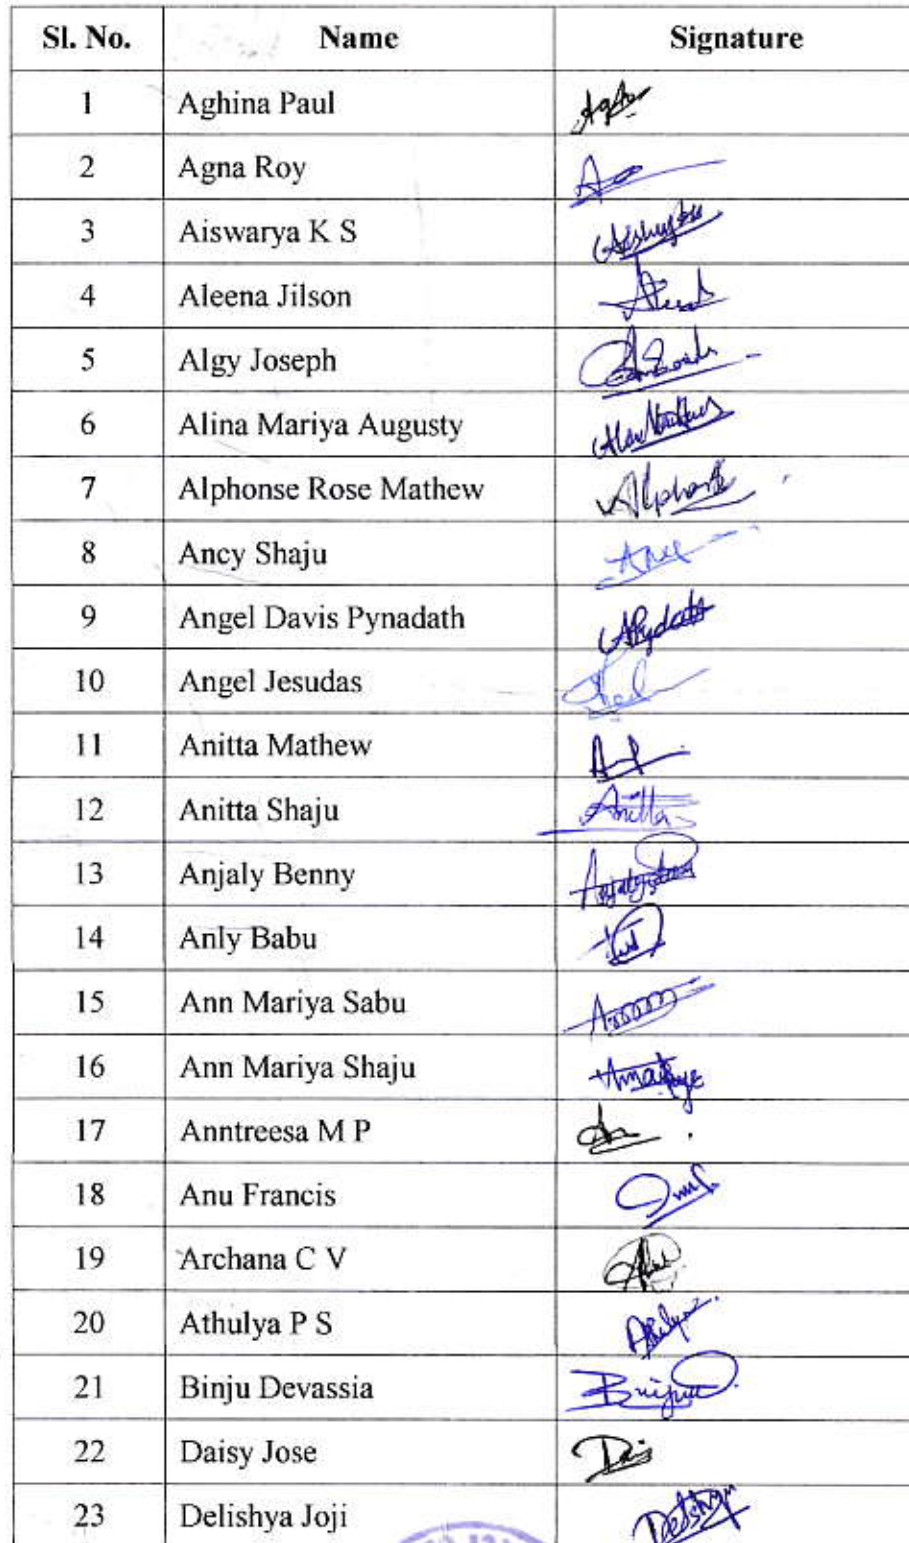 Sl. No. Name Signature
1 Aghina Paul
2 Agna Roy
3 Aiswarya K S
4 Aleena Jilson
5 Algy Joseph
6 Alina Mariya Augusty
7 Alphonse Rose Mathew Alphonse
8 Ancy Shaju
9 Angel Davis Pynadath
10 Angel Jesudas
11 Anitta Mathew
12 Anitta Shaju Anitta
13 Anjaly Benny
14 Anly Babu
15 Ann Mariya Sabu
16 Ann Mariya Shaju
17 Anntreesa M P
18 Anu Francis
19 Archana C V
20 Athulya P S
21 Binju Devassia Binju
22 Daisy Jose
23 Delishya Joji